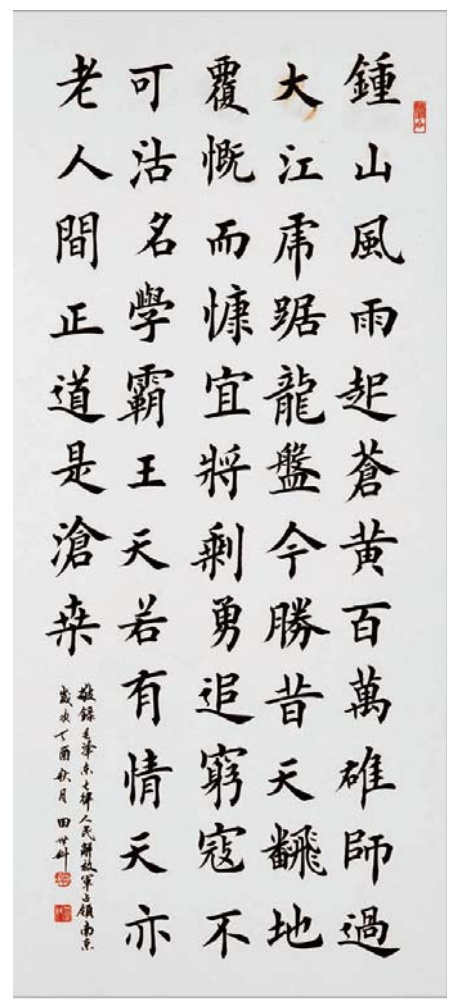 鍾山風雨起蒼黄百萬雄師過
大江虎踞龍盤今勝昔天飜地
覆慨而慷宜將剩勇追窮寇不
可沽名學霸王天若有情天亦
老人間正道是滄桒
敬錄毛澤東七律人民解放軍占領南京
歲次丁酉秋月 田世